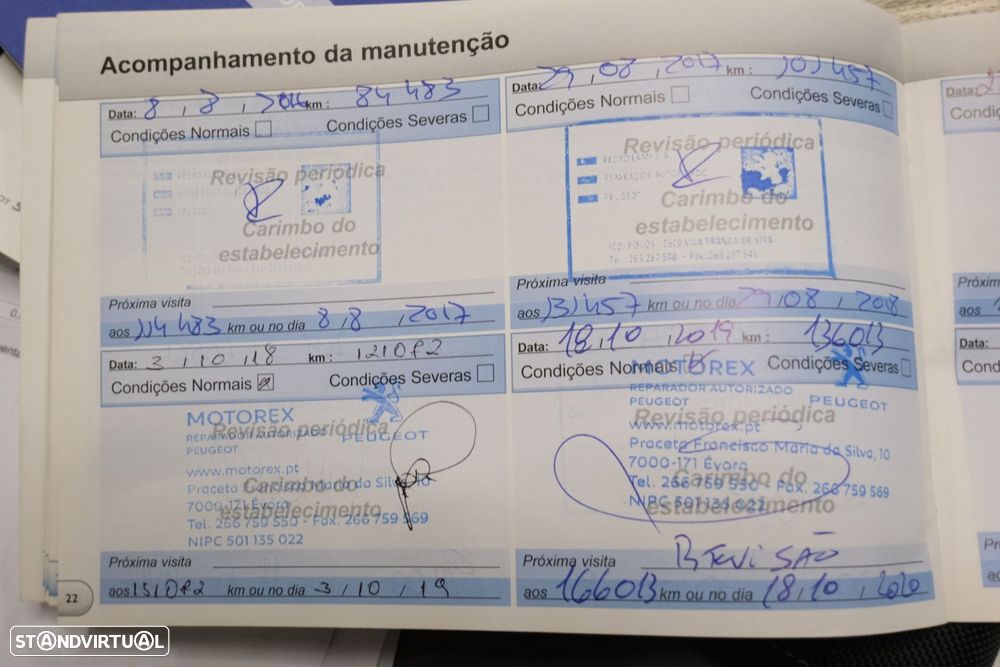 Acompanhamento da manutenção
Data: 8 , 8 , 2016 km : 84 483
Condições Normais Condições Severas
Revisão periódica
Carimbo do
estabelecimento
Próxima visita
aos 114 483 km ou no dia 8 , 8 , 2017
Data: 29 , 08 , 2017 km : 101457
Condições Normais Condições Severas
Revisão periódica
REPARADOR AUTORIZADO
PEUGEOT
Carimbo do
estabelecimento
VILA FRANCA DE XIRA
Próxima visita
aos 131457 km ou no dia 29 , 08 , 2018
Data: 3 , 10 , 18 km : 121082
Condições Normais Condições Severas
MOTOREX
Revisão periódica
REPARADOR AUTORIZADO PEUGEOT
PEUGEOT
www.motorex.pt
Praceta Francisco Maria da Silva, 10
Carimbo do
7000-171 Évora
estabelecimento
Tel. 266 759 550 - Fax. 266 759 569
NIPC 501 135 022
Próxima visita
aos 151082 km ou no dia 3 , 10 , 19
Data: 18 , 10 , 2019 km : 136013
Condições Normais Condições Severas
MOTOREX
REPARADOR AUTORIZADO
PEUGEOT PEUGEOT
Revisão periódica
www.motorex.pt
Praceta Francisco Maria da Silva, 10
7000-171 Évora
Carimbo do
Tel. 266 759 550 - Fax. 266 759 569
NIPC 501 135 022
estabelecimento
Próxima visita
REVISÃO
aos 166013 km ou no dia 18 , 10 , 2020
22
Data:
Condi
Próxim
aos
Data:
Cond
Pr
ao
STANDVIRTUAL